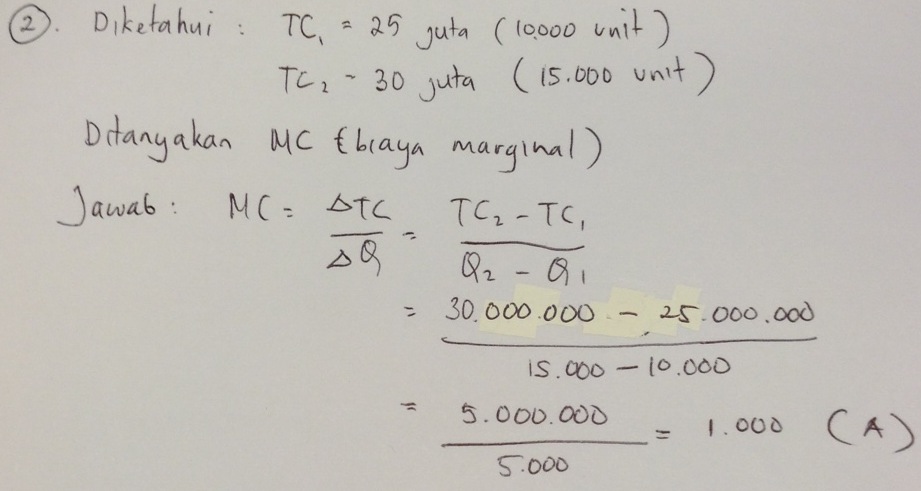 2. Diketahui : TC₁ = 25 juta (10.000 unit)
TC₂ = 30 juta (15.000 unit)
Ditanyakan MC (biaya marginal)
Jawab : MC = ΔTC/ΔQ = TC₂ - TC₁/Q₂ - Q₁
= 30.000.000 - 25.000.000/15.000 - 10.000
= 5.000.000/5.000 = 1.000 (A)